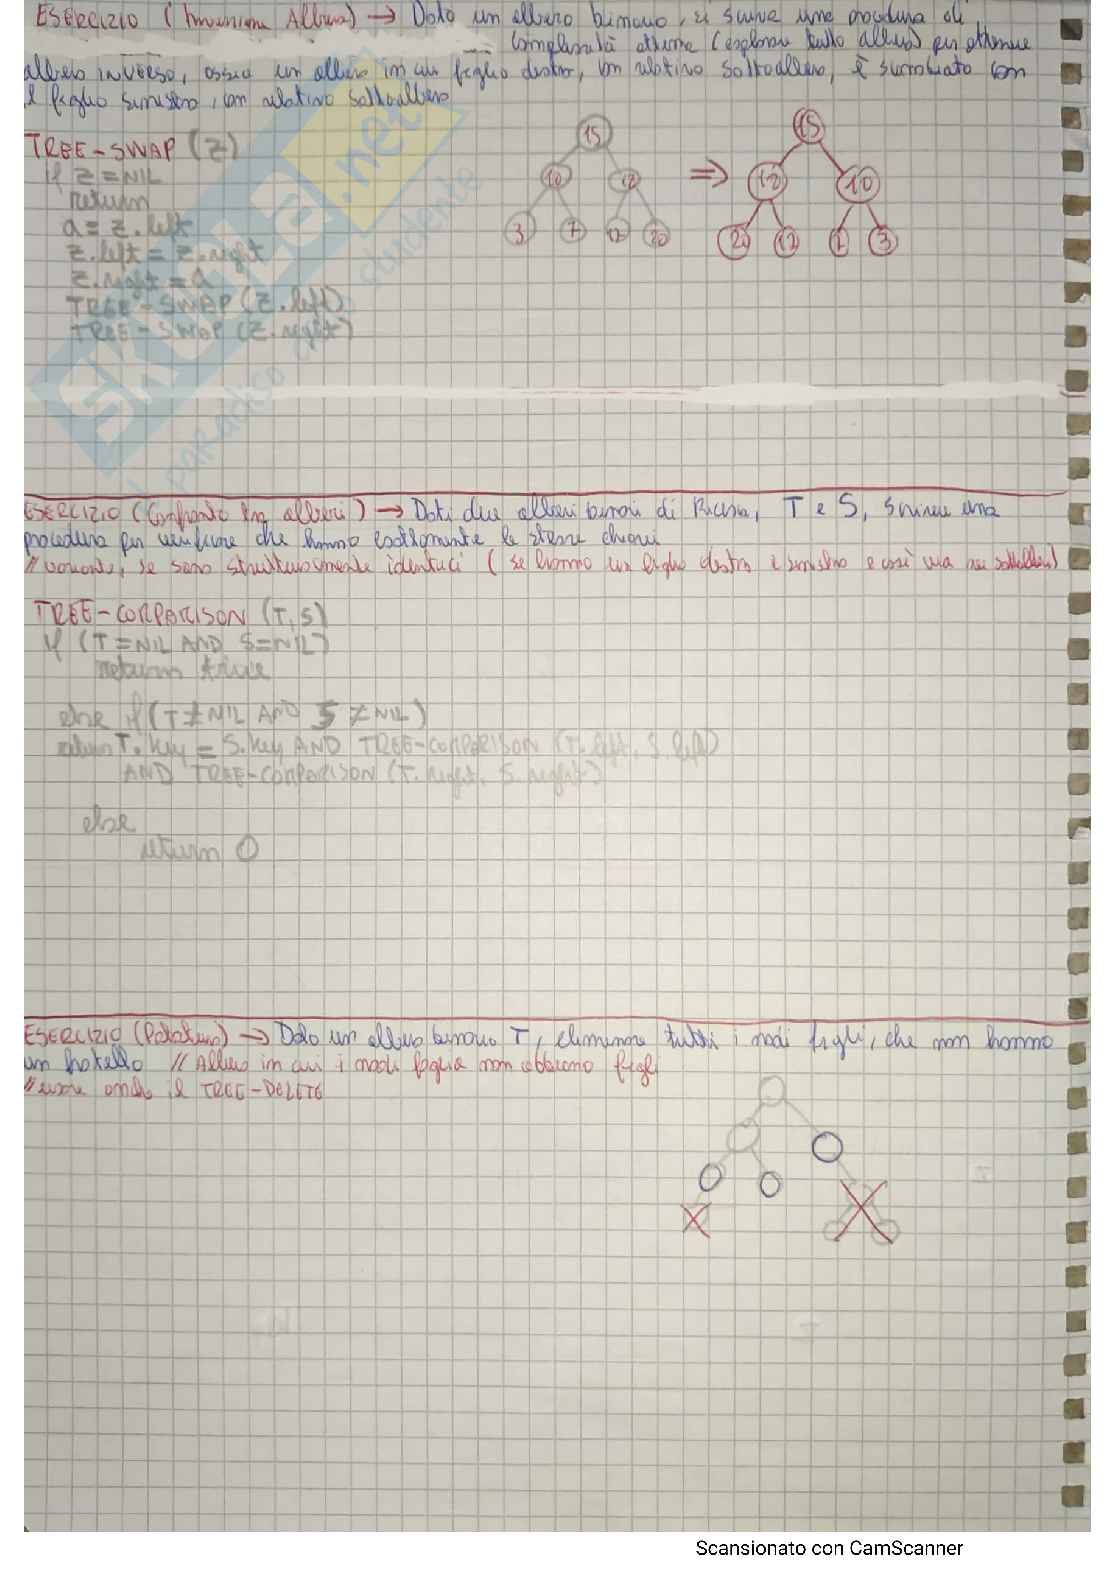 ESERCIZIO (Inversione Albero) → Dato un albero binario, si scriva una procedura di
complessità ottima (esplorare tutto albero) per ottenere
albero inverso, ossia un albero in cui figlio destro, con relativo sottoalbero, è scambiato con
il figlio sinistro, con relativo sottoalbero
TREE-SWAP (Z)
if Z = NIL
return
a = z.left
z.left = z.right
z.right = a
TREE-SWAP (Z.left)
TREE-SWAP (Z.right)
15
10 18
3 7 17 20
⇒
15
18 10
20 17 7 3
SKUOLA.net
il paradiso dello studente
ESERCIZIO (Confronto tra alberi) → Dati due alberi binari di Ricerca, T e S, scrivere una
procedura per verificare che hanno esattamente le stesse chiavi
// variante, se sono strutturalmente identici (se hanno un figlio destro e sinistro e così via nei sottoalberi)
TREE-COMPARISON (T, S)
if (T = NIL AND S = NIL)
return true
else if (T ≠ NIL AND S ≠ NIL)
return T.key = S.key AND TREE-COMPARISON (T.left, S.left)
AND TREE-COMPARISON (T.right, S.right)
else
return 0
ESERCIZIO (Potatura) → Dato un albero binario T, eliminare tutti i nodi figli, che non hanno
un fratello // Albero in cui i nodi foglia non abbiano figli
// anche il TREE-DELETE
Scansionato con CamScanner